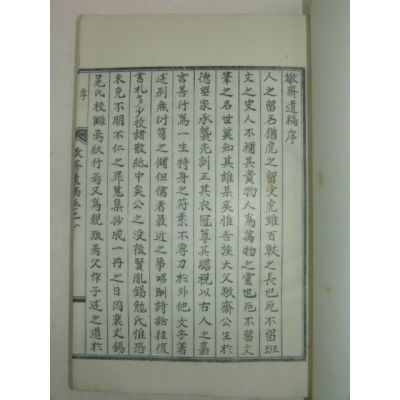 敬齋遺稿序
人之留名猶虎之留皮虎雖百獸之長也死不留斑
文之皮人不其貴物人爲萬物之靈也死不留文
筆之名世莫知其誰某矣惟吾族大父敬齋公生於
德望家承襲先訓正其衣冠尊其瞻視以古人之嘉
言善行爲一生持身之符素不專力於外他文字著
述別無衍笥之儲但儒者最近之事唱酬詩話往復
書札多少收諸散紙中矣公之沒後賢胤錫勉氏惟恐
未免不明不仁之罪蒐集抄成一冊之日因丈錫
冕氏校讎焉狀行焉又爲親跋焉父子述之道於
序
敬齋遺稿卷之一